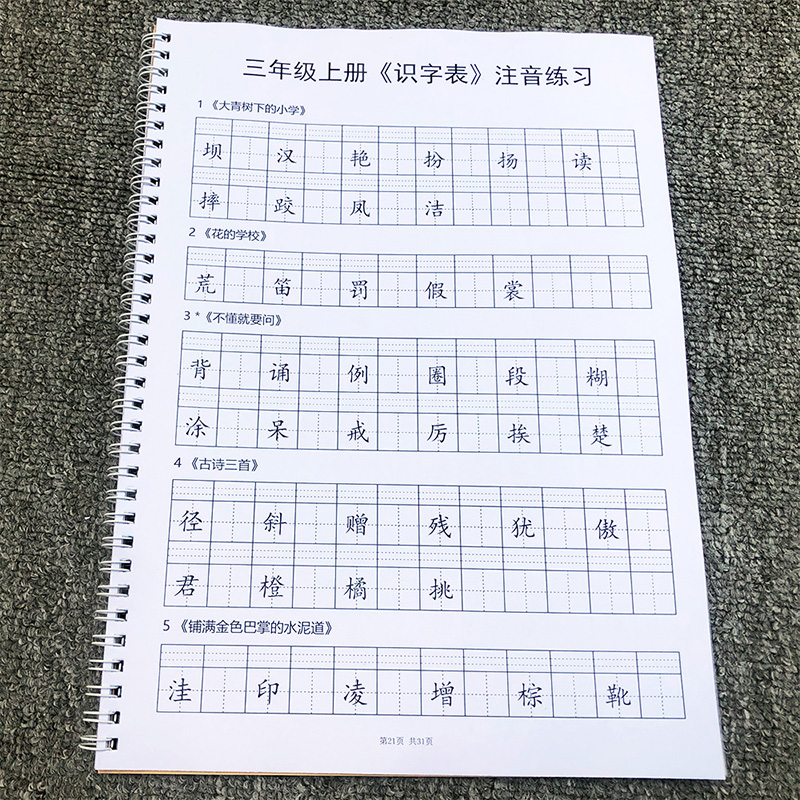 三年级上册《识字表》注音练习
1 《大青树下的小学》
坝 汉 艳 扮 扬 读
摔 跤 凤 洁
2 《花的学校》
荒 笛 罚 假 裳
3 *《不懂就要问》
背 诵 例 圈 段 糊
涂 呆 戒 厉 挨 楚
4 《古诗三首》
径 斜 赠 残 犹 傲
君 橙 橘 挑
5 《铺满金色巴掌的水泥道》
洼 印 凌 增 棕 靴
第21页 共31页